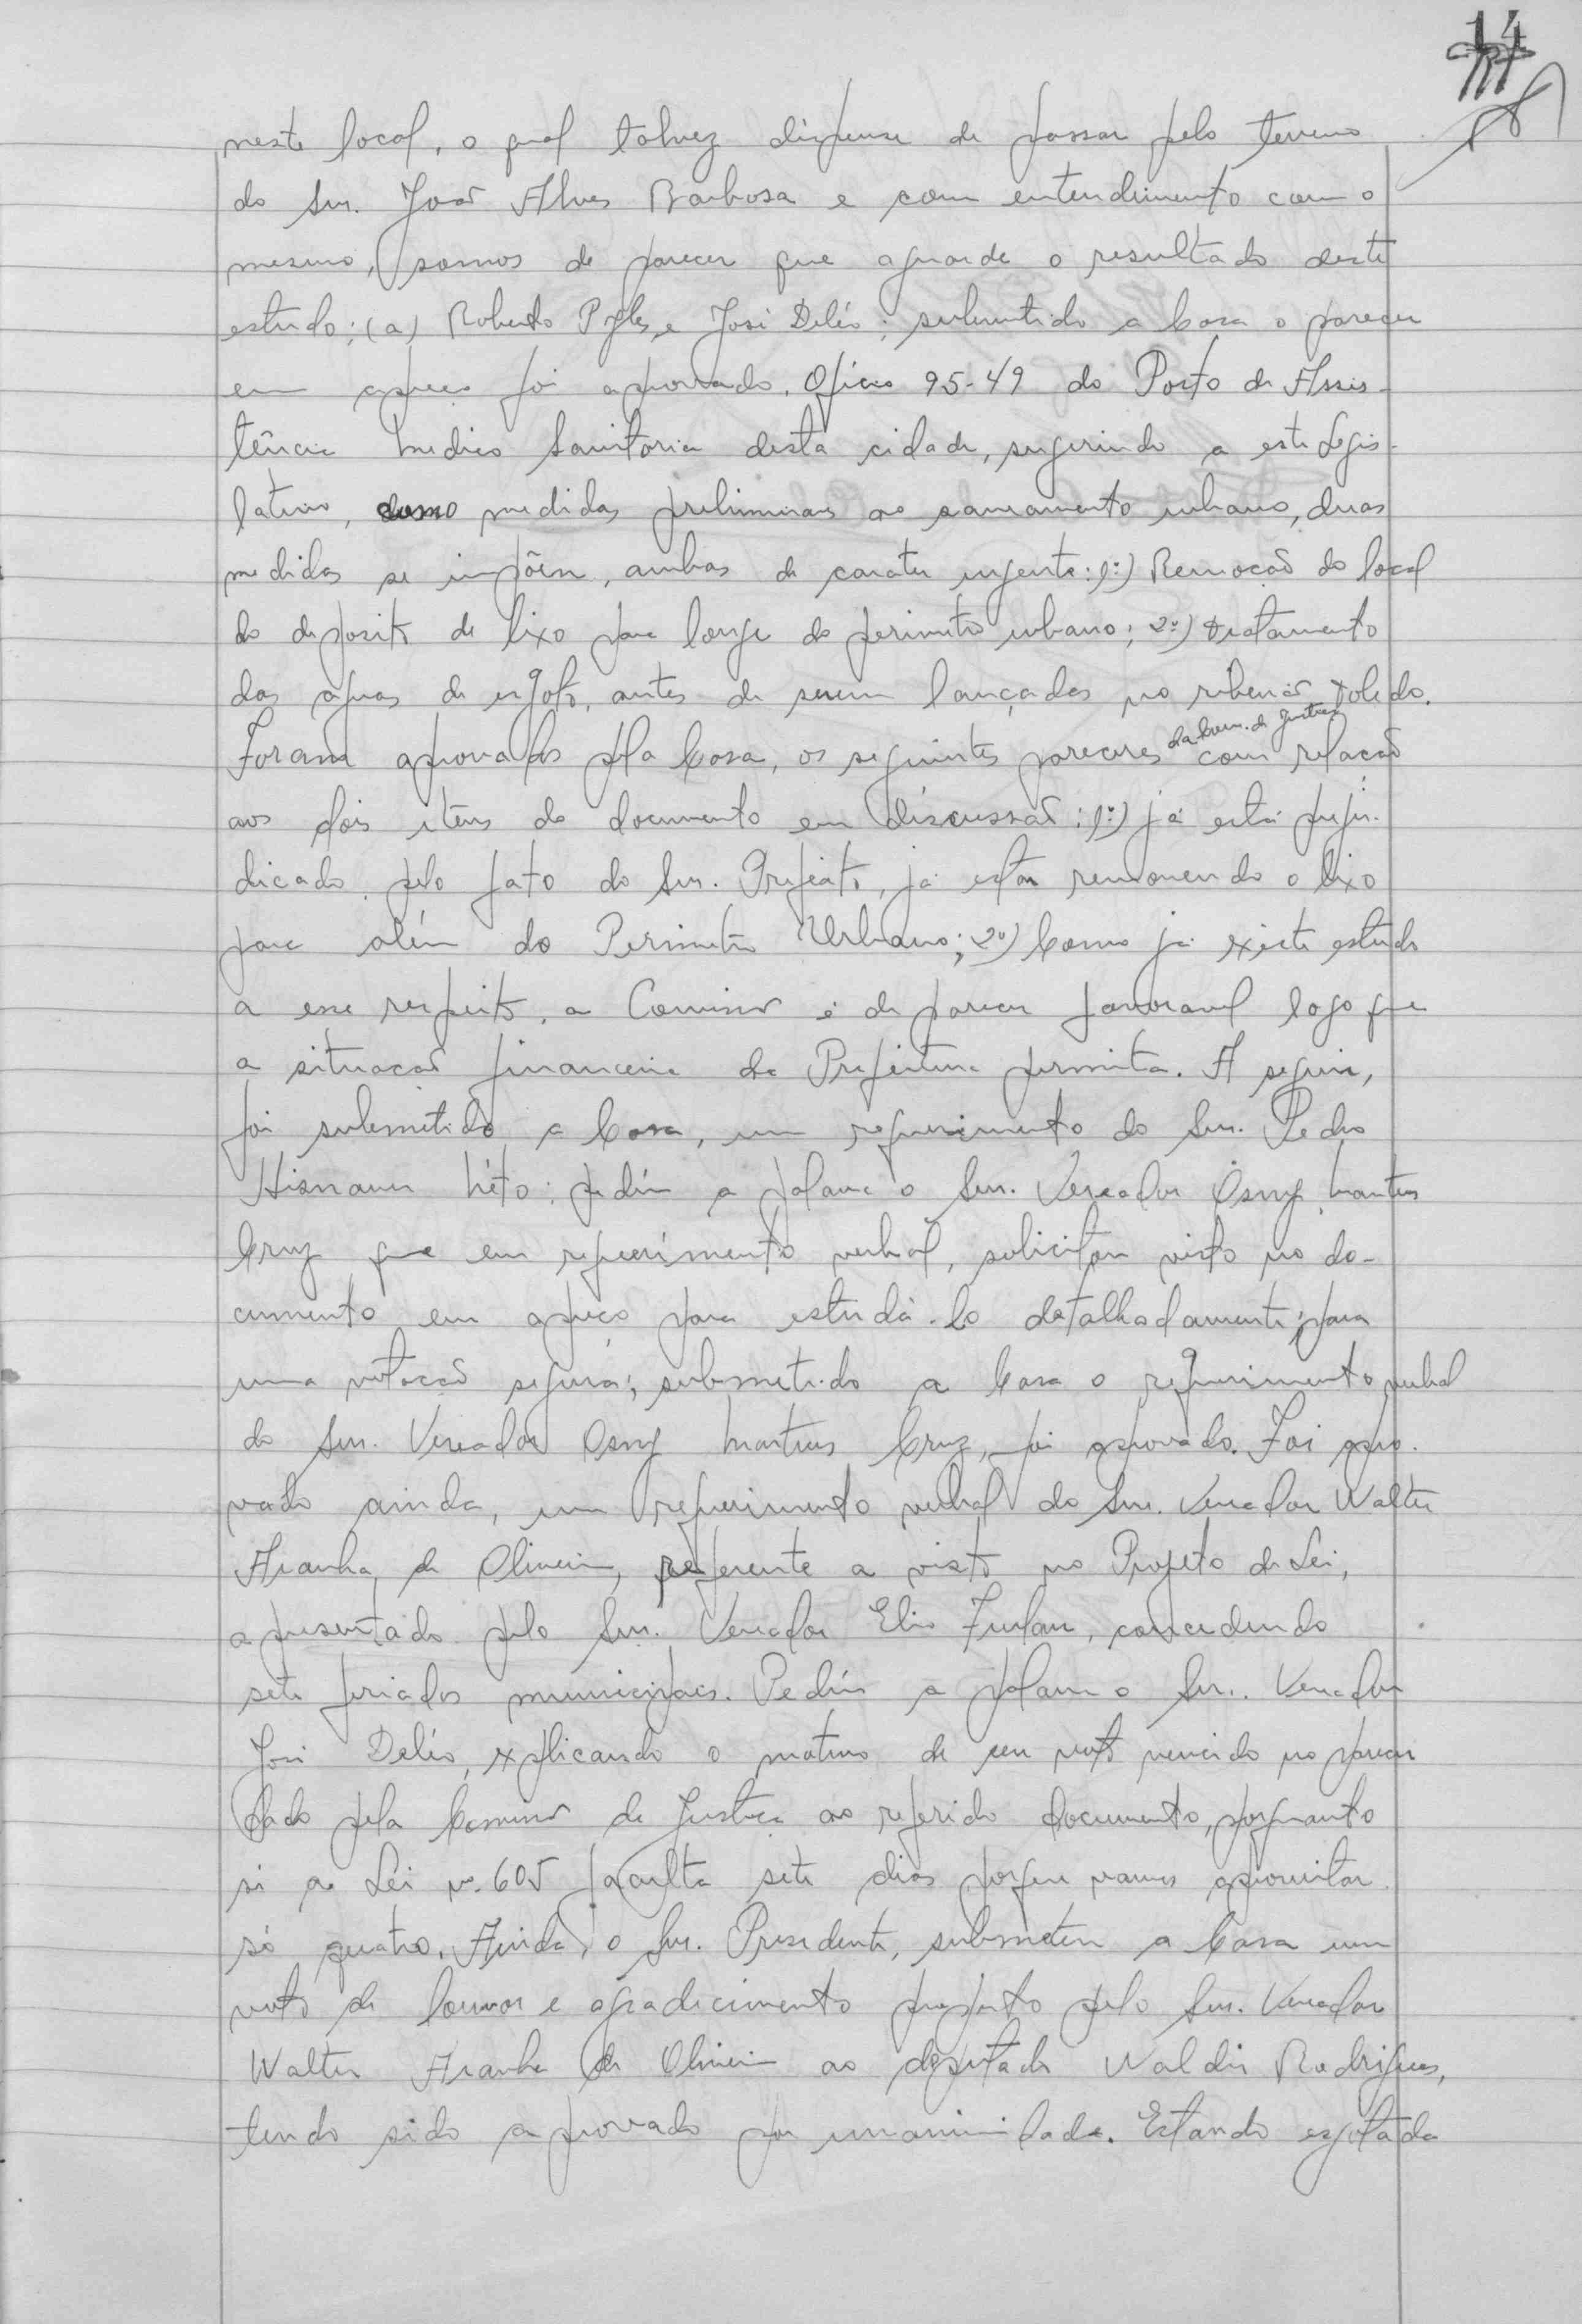 14
neste local, o qual talvez dispense de passar pelo terreno
do Snr. João Alves Barbosa e com entendimento com o
mesmo, somos de parecer que aguarde o resultado deste
estudo; (a) Roberto e José Deléo; submetido a Casa o parecer
em apreço foi aprovado. Oficio 95-49 do Posto de Assis-
tência Medico Sanitaria desta cidade, sugerindo a este Legis-
lativo, como medidas preliminares ao saneamento urbano, duas
medidas se impõem, ambas de carater urgente: 1º) Remoção do local
do deposito de lixo para longe do perimetro urbano; 2º) tratamento
das aguas de esgoto, antes de serem lançadas no ribeirão toledo.
Foram aprovados pela Casa, os seguintes pareceres da Com. de Justiça com relação
aos dois itens do documento em discussão: 1º) já está preju-
dicado pelo fato do Snr. Prefeito, já estar removendo o lixo
para além do Perimetro Urbano; 2º) Como já existe estudo
a esse respeito, a Comissão é de parecer favoravel logo que
a situação financeira da Prefeitura permita. A seguir,
foi submetido a Casa, um requerimento do Snr. Pedro
Hismann Néto: pediu a palavra o Snr. Vereador Osny Martins
Cruz que em requerimento verbal, solicitou visto no do-
cumento em apreço para estudá-lo detalhadamente para
uma votação segura; submetido a Casa o requerimento verbal
do Snr. Vereador Osny Martins Cruz, foi aprovado. Foi apro-
vado ainda, um requerimento verbal do Snr. Vereador Walter
Aranha de Oliveira, referente a visto no Projeto de Lei,
apresentado pelo Snr. Vereador Elio Furlan, concedendo
sete feriados municipais. Pediu a palavra o Snr. Vereador
José Deléo, explicando o motivo de seu voto vencido no parecer
dado pela Comissão de Justiça ao referido documento, porquanto
si a Lei nº. 605 faculta sete dias porque vamos aproveitar
só quatro. Ainda, o Snr. Presidente, submeteu a Casa um
voto de louvor e agradecimento proposto pelo Snr. Vereador
Walter Aranha de Oliveira ao deputado Waldir Rodrigues,
tendo sido aprovado por unanimidade. Estando esgotada